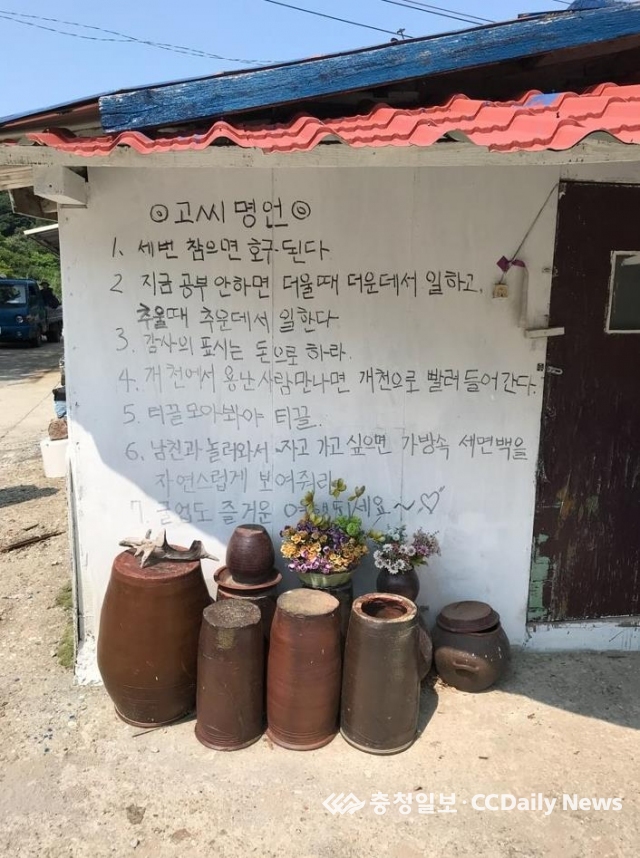 ◎고씨 명언◎
1. 세번 참으면 호구된다.
2 지금 공부 안하면 더울때 더운데서 일하고,
추울때 추운데서 일한다
3. 감사의 표시는 돈으로 하라.
4. 개천에서 용난사람만나면 개천으로 빨러들어간다.
5. 티끌모아봐야 티끌.
6. 남친과 놀러와서 자고 가고 싶으면 가방속 세면백을
자연스럽게 보여줘라
7. 즐거운 ~♡
충청일보·CCDaily News